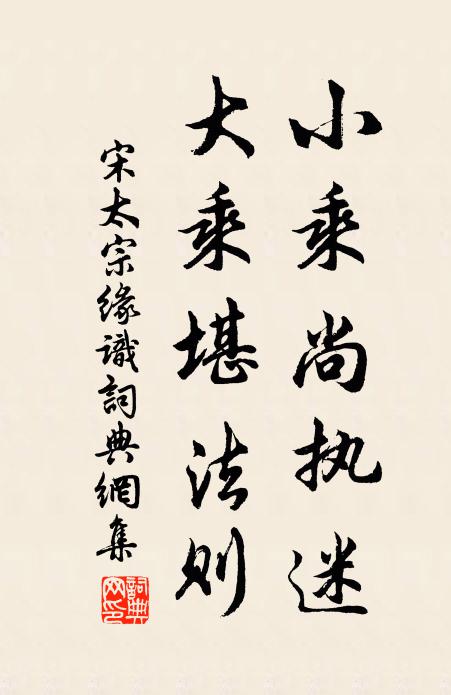 小乘尚执迷
大乘堪法则
宋太宗缘識詞典網集
詞典网印